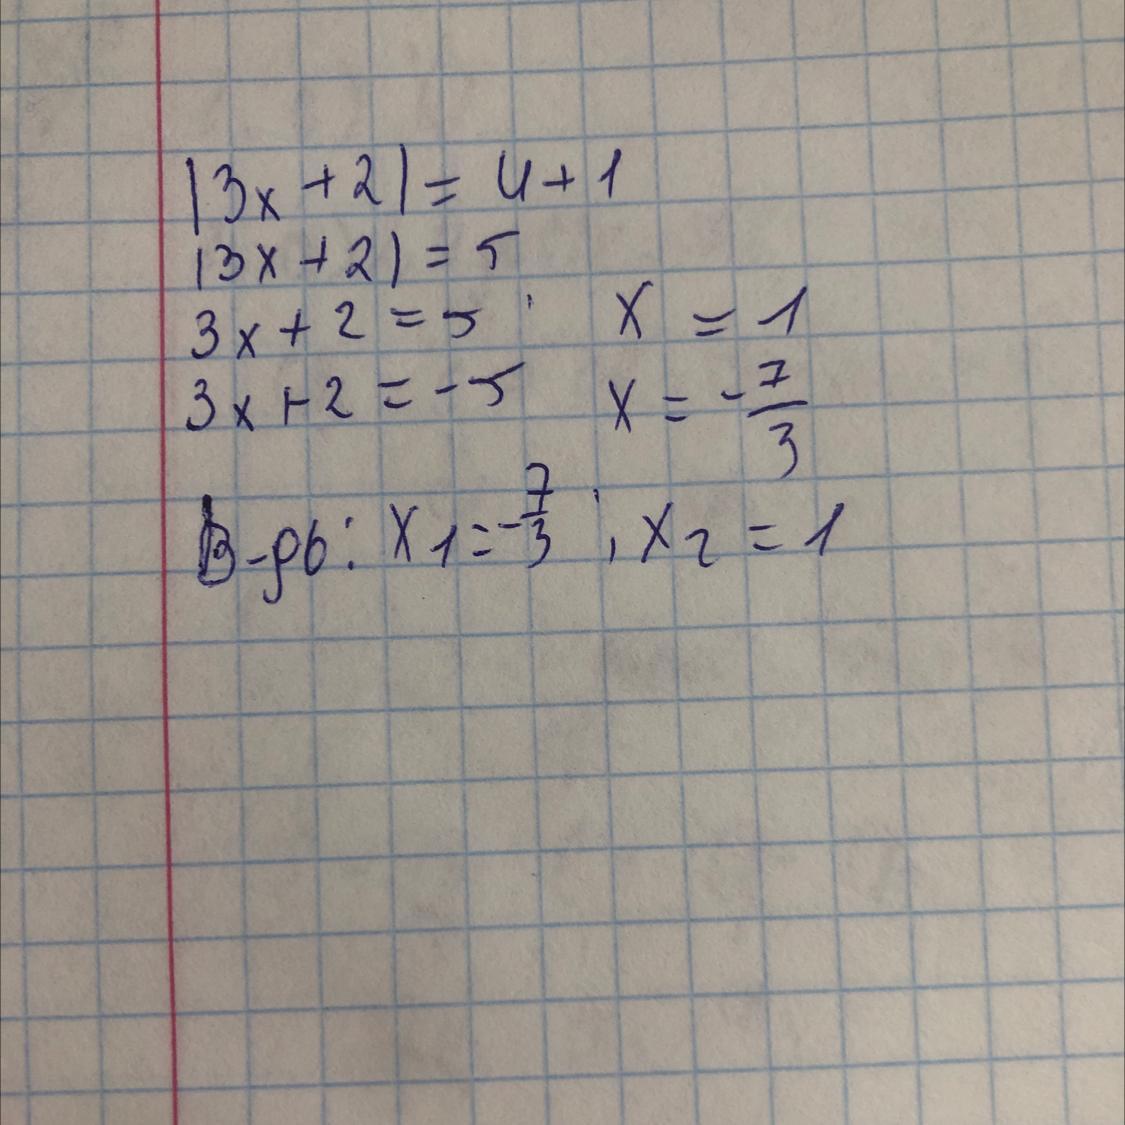 |3x + 2| = 4 + 1
|3x + 2| = 5
3x + 2 = 5 x = 1
3x + 2 = -5 x = -7/3
В-дь: x1 = -7/3, x2 = 1